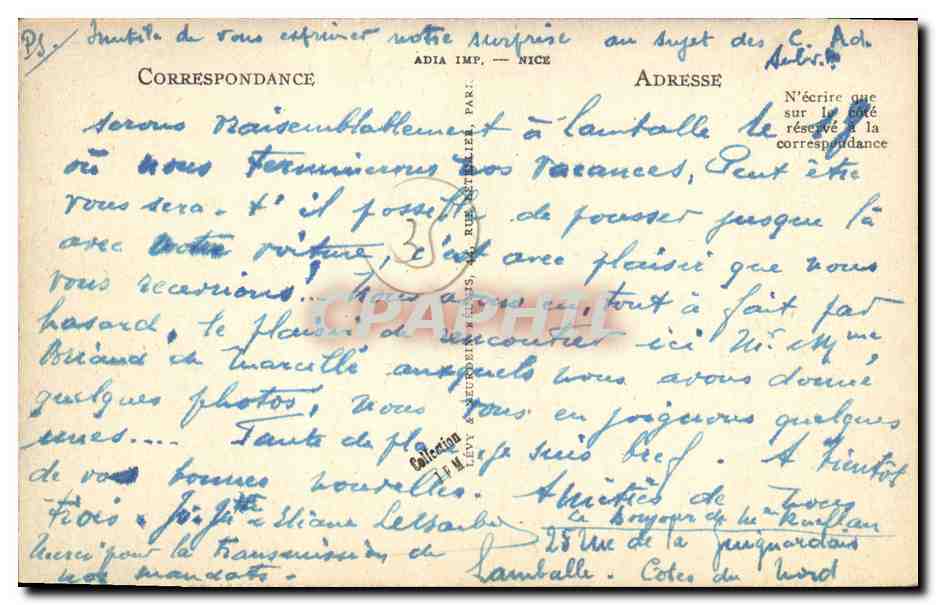 PS. Inutile de vous exprimer notre surprise au sujet des C. Ad.
ADIA IMP. — NICE
CORRESPONDANCE
ADRESSE
N'écrire que
sur le côté
réservé à la
correspondance
serons vraisemblablement à Lamballe le
où nous terminerons nos vacances, Peut être
vous sera-t'il possible de pousser jusque là
avec votre voiture, c'est avec plaisir que nous
vous recevrions... Nous avons eu, tout à fait par
hasard, le plaisir de rencontrer ici Mr. et Mme
Briand et Marcelle auxquels nous avons donné
quelques photos, nous vous en joignons quelques
unes.... Faute de place je suis bref. A bientôt
de vos bonnes nouvelles. Amitiés de nous
trois. Eliane
Le bonjour de Mme
Merci pour la transmission de
25 rue de la
nos mandats.
Lamballe. Côtes du Nord
LÉVY & NEURDEIN RÉUNIS, RUE LETELLIER, PARI
35
CPAPHIL
Collection